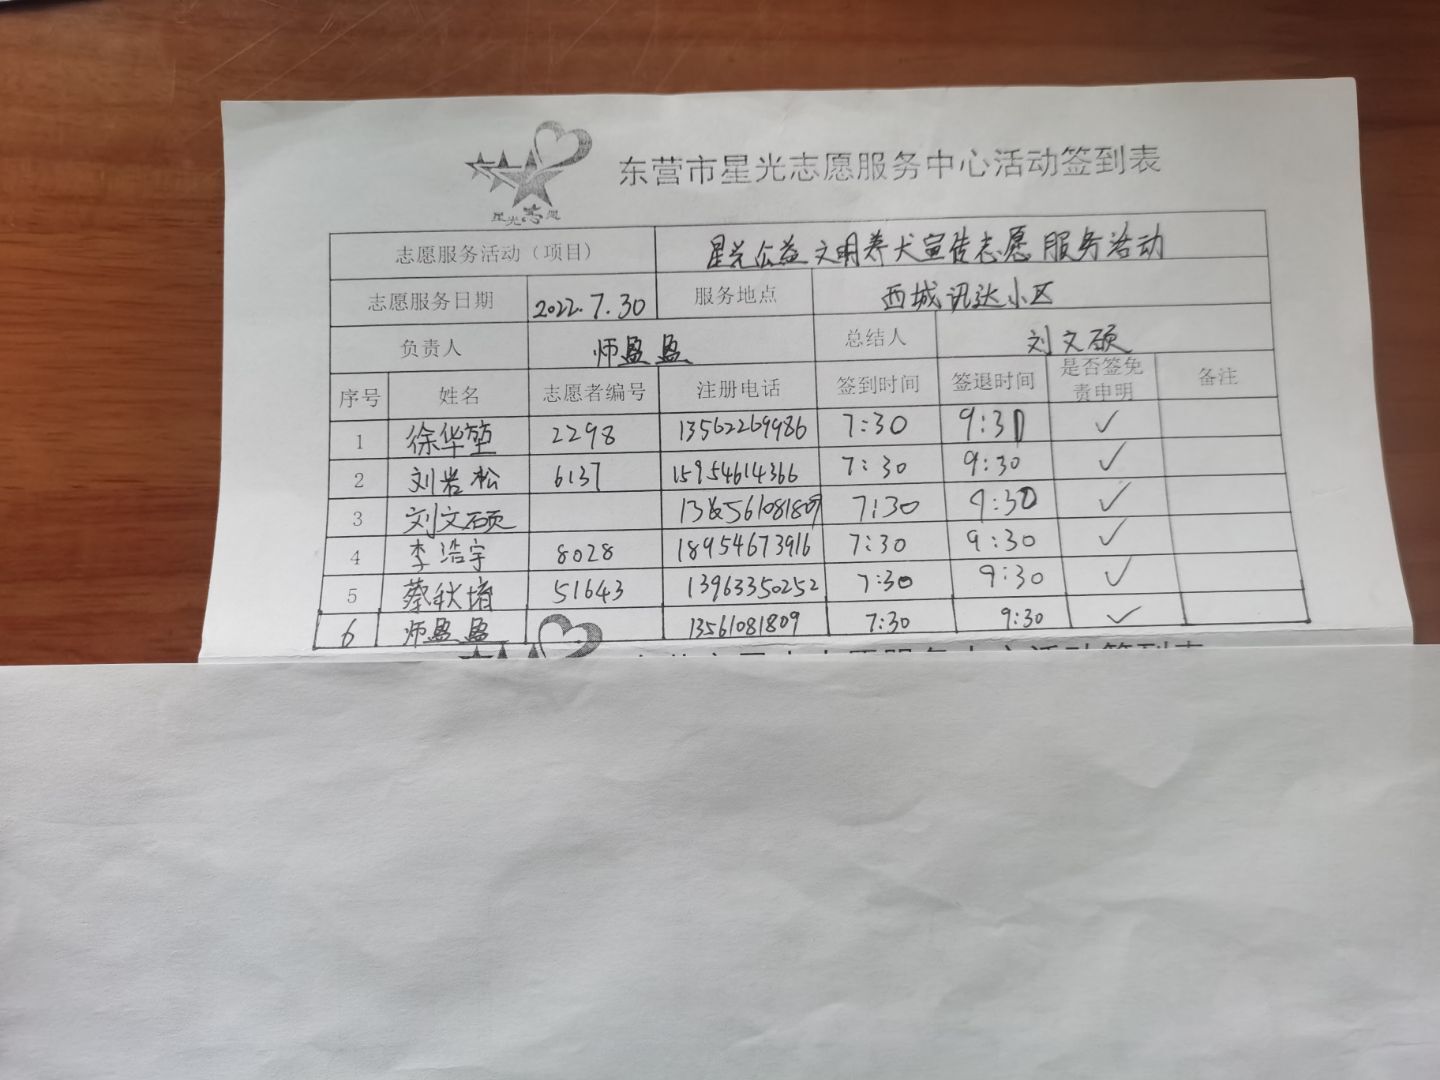 东营市星光志愿服务中心活动签到表
星光志愿
志愿服务活动（项目） 星光公益文明养犬宣传志愿服务活动
志愿服务日期 2022.7.30 服务地点 西城讯达小区
负责人 师盈盈 总结人 刘文硕
序号 姓名 志愿者编号 注册电话 签到时间 签退时间 是否签免责申明 备注
1 徐华堃 2298 13562269986 7:30 9:30 ✓
2 刘岩松 6137 15954614366 7:30 9:30 ✓
3 刘文硕 7:30 9:30 ✓
4 李浩宇 8028 18954673916 7:30 9:30 ✓
5 蔡秋 51643 13963350252 7:30 9:30 ✓
6 师盈盈 13561081809 7:30 9:30 ✓